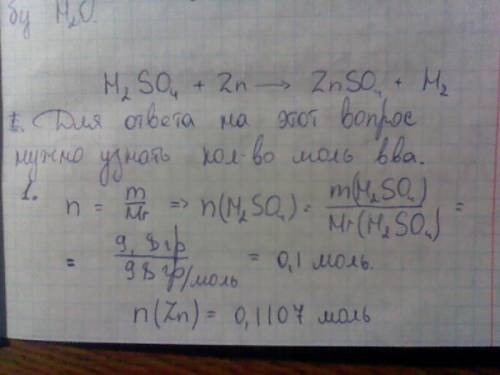 бу H₂O.
H₂SO₄ + Zn → ZnSO₄ + H₂
I. Для ответа на этот вопрос
нужно узнать кол-во моль вва.
1. n = m/Mr => n(H₂SO₄) = m(H₂SO₄)/Mr(H₂SO₄) =
= 9,8 гр/98 гр/моль = 0,1 моль.
n(Zn) = 0,1107 моль